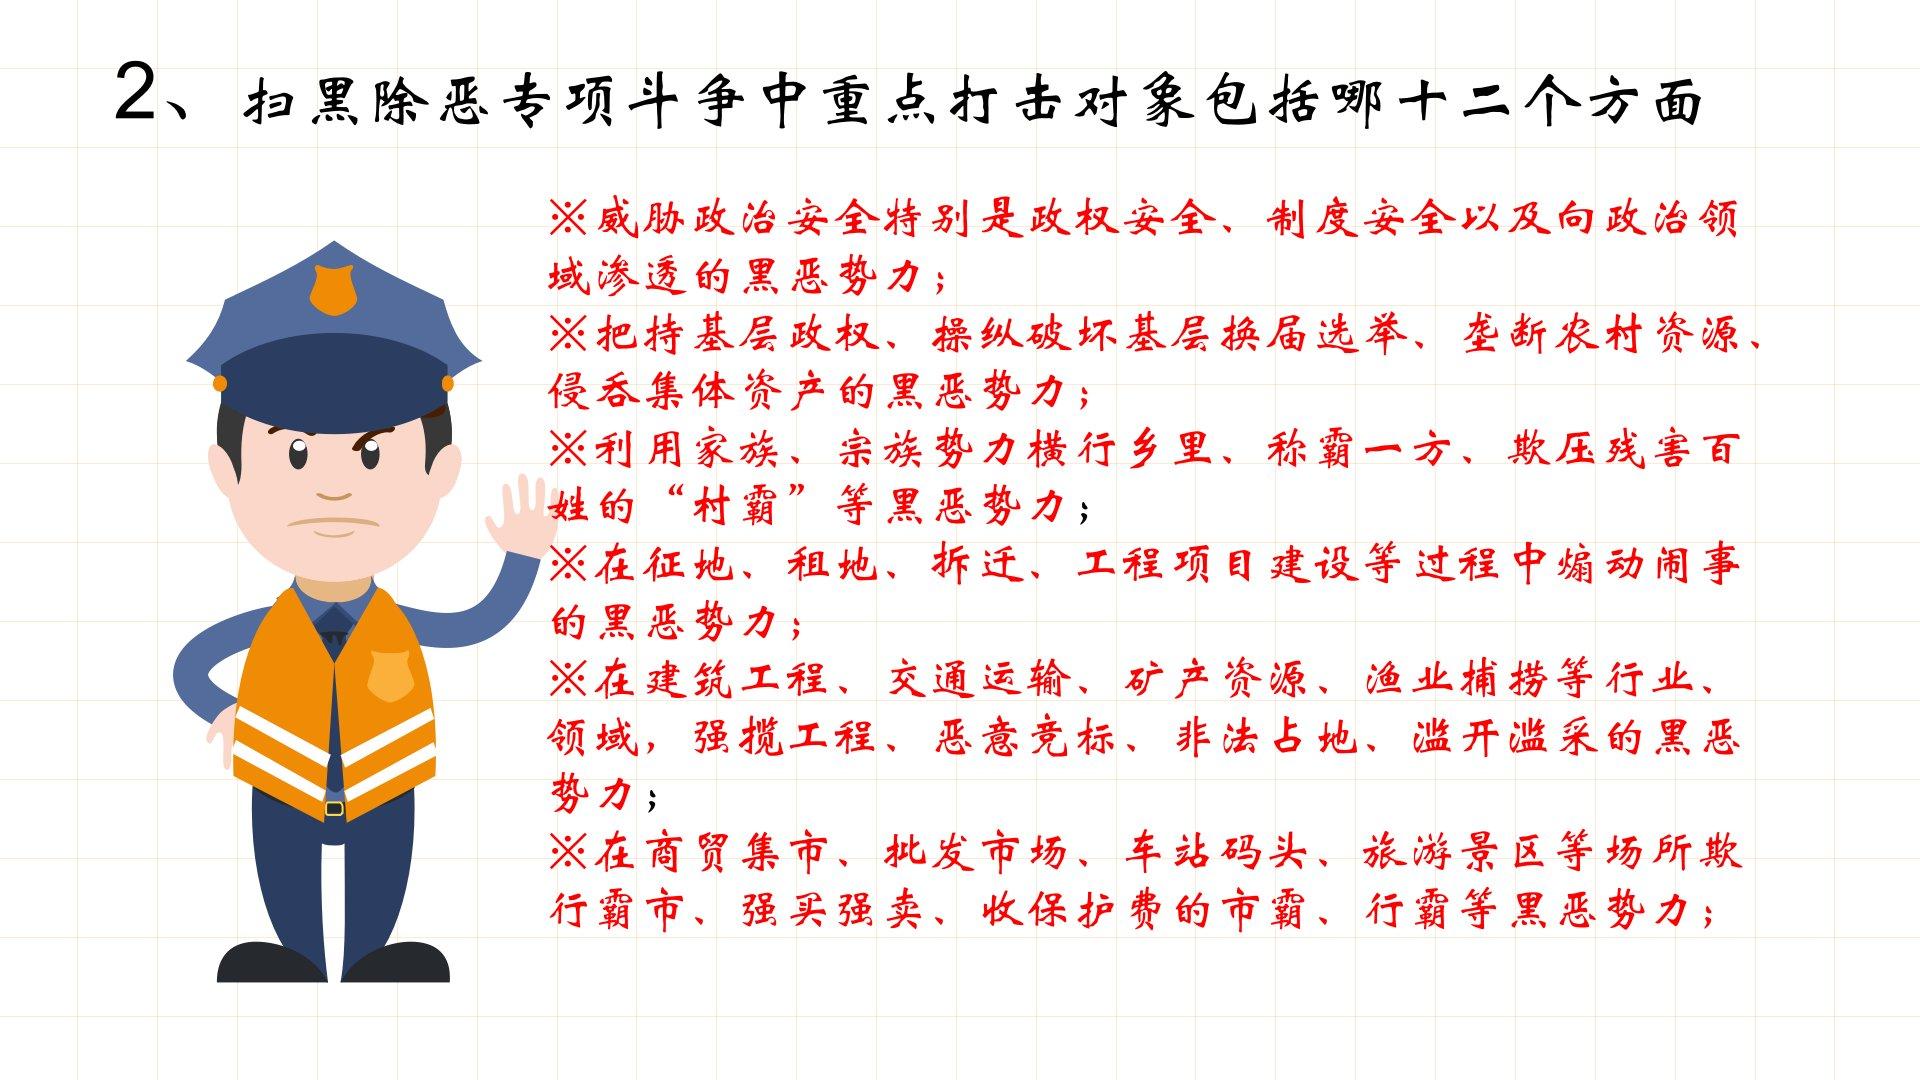 2、扫黑除恶专项斗争中重点打击对象包括哪十二个方面
※威胁政治安全特别是政权安全、制度安全以及向政治领
域渗透的黑恶势力；
※把持基层政权、操纵破坏基层换届选举、垄断农村资源、
侵吞集体资产的黑恶势力；
※利用家族、宗族势力横行乡里、称霸一方、欺压残害百
姓的“村霸”等黑恶势力；
※在征地、租地、拆迁、工程项目建设等过程中煽动闹事
的黑恶势力；
※在建筑工程、交通运输、矿产资源、渔业捕捞等行业、
领域，强揽工程、恶意竞标、非法占地、滥开滥采的黑恶
势力；
※在商贸集市、批发市场、车站码头、旅游景区等场所欺
行霸市、强买强卖、收保护费的市霸、行霸等黑恶势力；